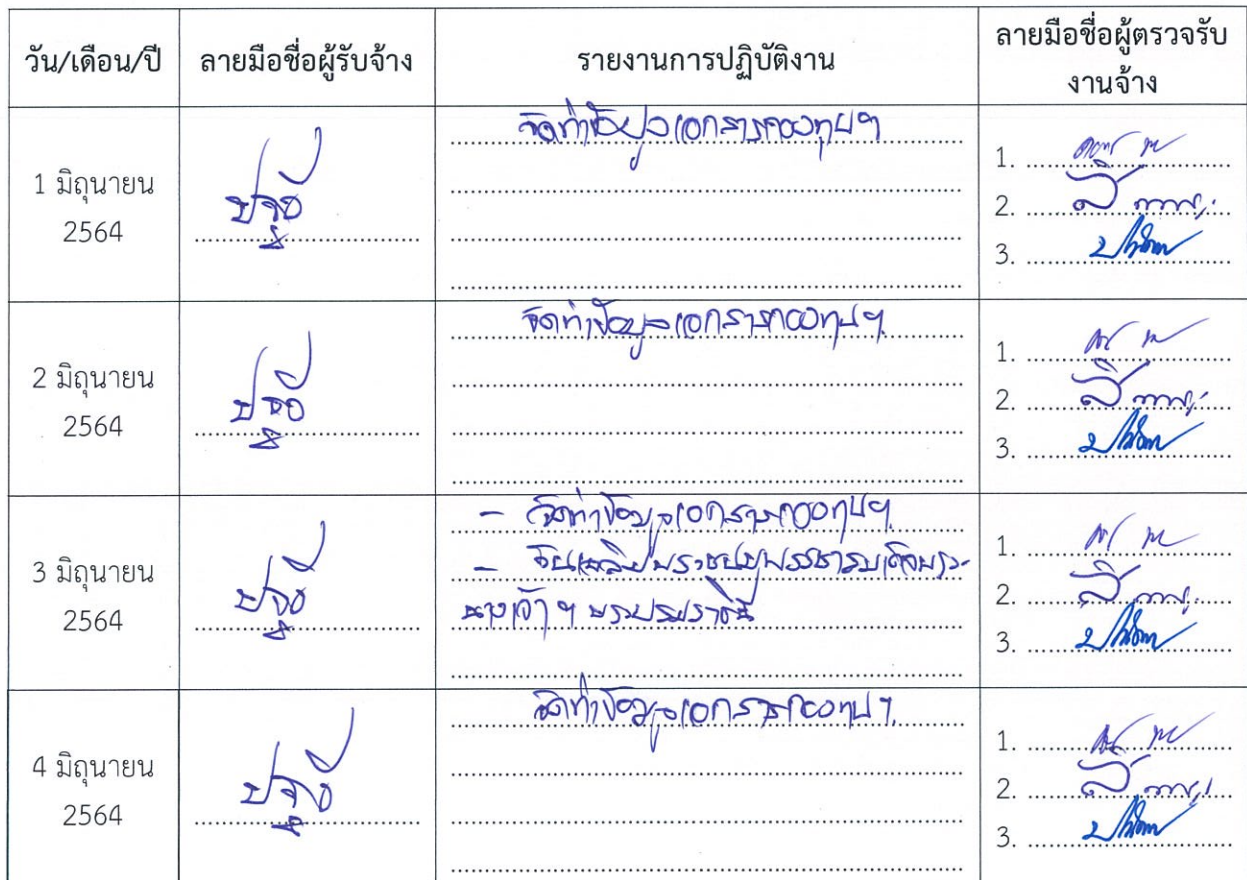 วัน/เดือน/ปี
ลายมือชื่อผู้รับจ้าง
รายงานการปฏิบัติงาน
ลายมือชื่อผู้ตรวจรับ
งานจ้าง
1 มิถุนายน
2564
จัดทำข้อมูลเอกสารกองทุนฯ
1.
2.
3.
2 มิถุนายน
2564
จัดทำข้อมูลเอกสารกองทุนฯ
1.
2.
3.
3 มิถุนายน
2564
- จัดทำข้อมูลเอกสารกองทุนฯ
- วันเฉลิมพระชนมพรรษาสมเด็จพระ
นางเจ้าฯ พระบรมราชินี
1.
2.
3.
4 มิถุนายน
2564
จัดทำข้อมูลเอกสารกองทุนฯ
1.
2.
3.